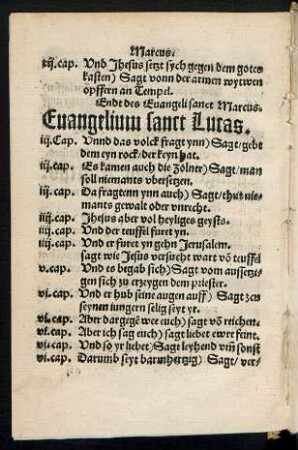 Marcus.
xij.cap. Vnd Jhesus setzt sych gegen dem gotes
kasten) Sagt vonn der armen wytwen
opffern an Tempel.
Endt des Euangeli sanct Marcus.
Euangelium sanct Lucas.
iij.Cap. Vnnd das volck fragt ynn) Sagt/gebt
dem eyn rock/der keyn hat.
iij.cap. (Es kamen auch die Zölner) Sagt/man
soll niemants vbersetzen.
iij.cap. Da fragtenn ynn auch) Sagt/thut nie-
mants gewalt oder vnrecht.
iiij.cap. Jhesus aber vol heyliges geysts.
iiij.cap. Vnd der teuffel furet yn.
iiij.cap. Vnd er furet yn gehn Jerusalem.
sagt wie Jesus versucht wart vō teuffel
v.cap. Vnd es begab sich) Sagt vom aussetzi-
gen sich zu erzeygen dem priester.
vi.cap. Vnd er hub seine augen auff) Sagt zen
seynen iungern selig seyt yr.
vi.cap. Aber dargegē wee euch) sagt vō reichen.
vi.cap. Aber ich sag euch) sagt liebet ewre feint.
vi.cap. Vnd so yr liebet) Sagt leyhend vm̄ sonst
vi.cap. Darumb seyt barmhertzig) Sagt/ ver-